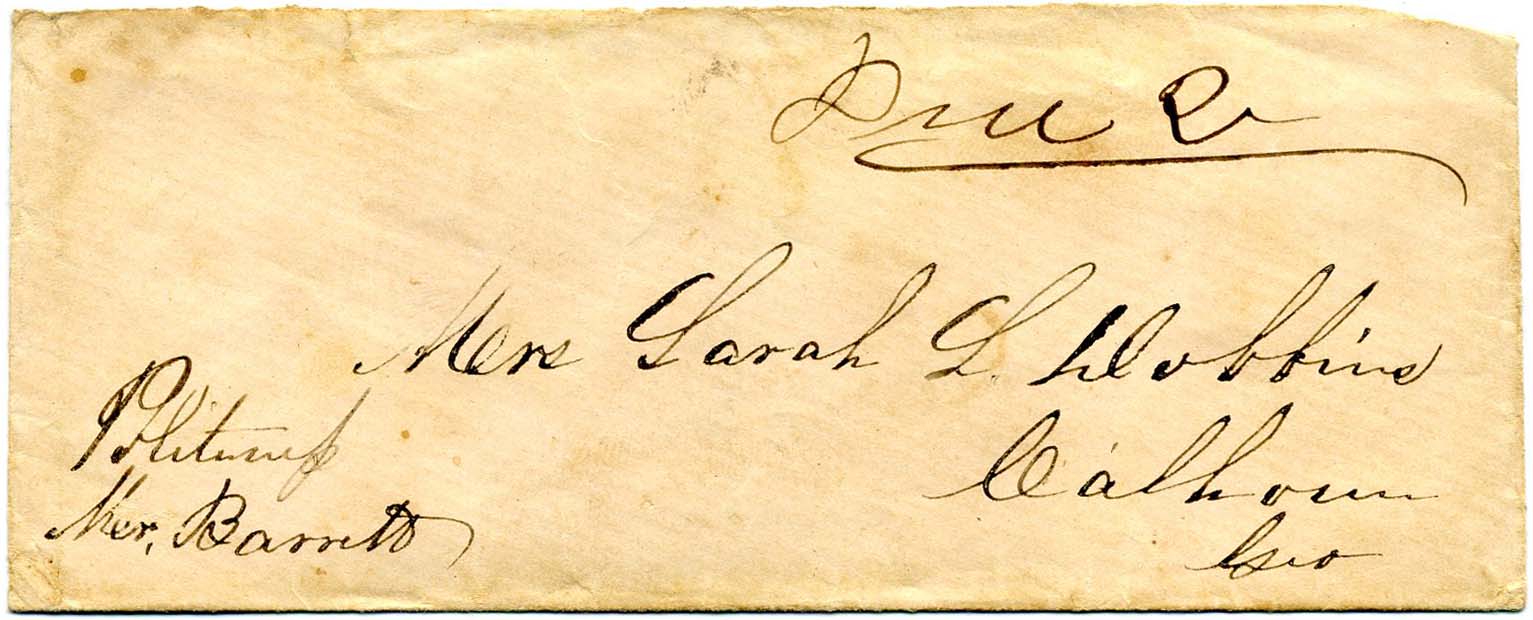 Due 2
Mrs Sarah L. Dobbins
Calhoun
Geo
Politeness
Mr. Barrett